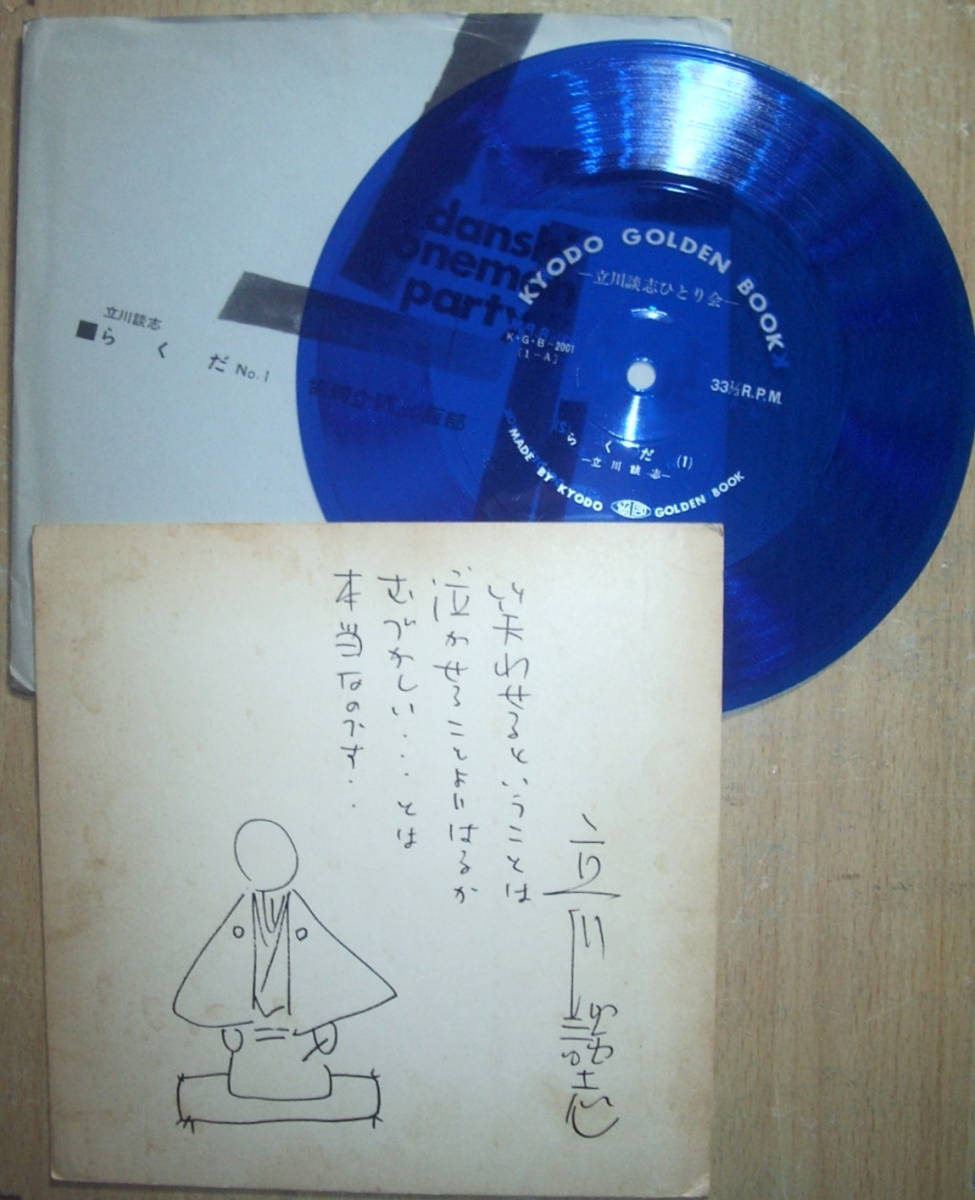 danshi
oneman
party
立川談志
■らくだ No.1
KYODO GOLDEN BOOK
—立川談志ひとり会—
K・G・B-2001
(1-A)
33⅓R.P.M.
らくだ (1)
—立川談志—
MADE BY KYODO 協同 GOLDEN BOOK
笑わせるということは
泣かせることよりはるか
むづかしい・・・とは
本当なのです・・
立川談志